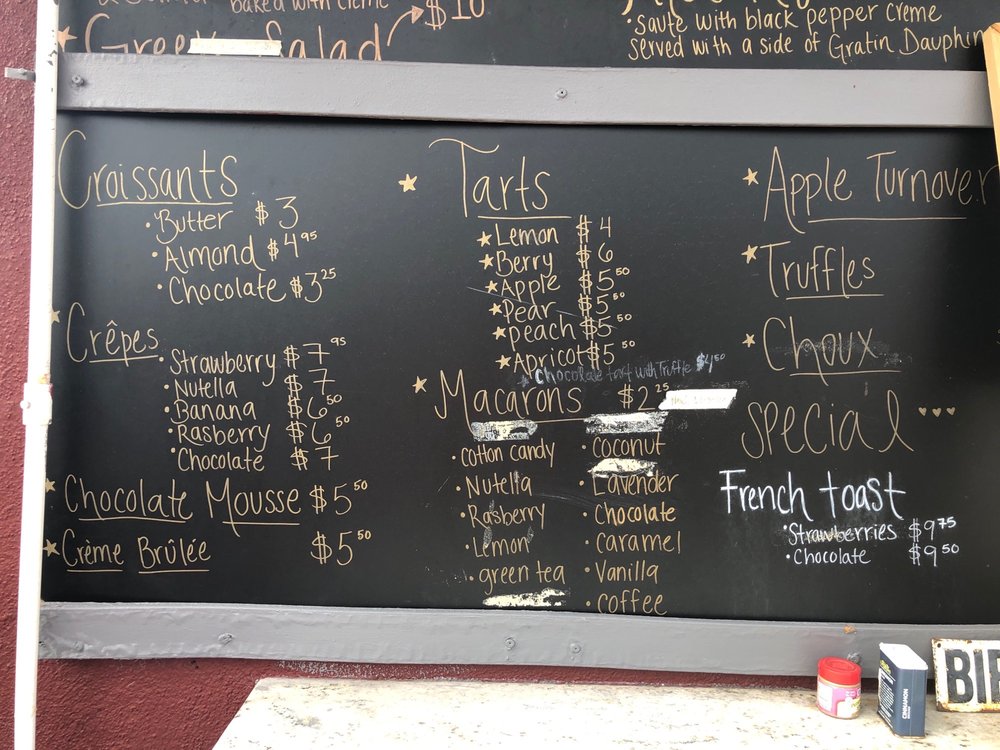 baked with crème
$10
Green Salad
• saute with black pepper creme
served with a side of Gratin Dauphin
Croissants
• Butter $3
• Almond $4.95
• Chocolate $3.25
★ Crêpes
• Strawberry $7.95
• Nutella $7
• Banana $6.50
• Rasberry $6.50
• Chocolate $7
★ Chocolate Mousse $5.50
★ Crème Brûlée $5.50
★ Tarts
★ Lemon $4
★ Berry $6
★ Apple $5.50
★ Pear $5.50
★ peach $5.50
★ Apricot $5.50
★ Chocolate tart with Truffle $4.50
★ Macarons $2.25
• cotton candy
• Nutella
• Rasberry
• Lemon
• green tea
• coconut
• Lavender
• Chocolate
• caramel
• Vanilla
• coffee
★ Apple Turnover
★ Truffles
★ Choux
special ♥♥♥
French toast
• Strawberries $9.75
• Chocolate $9.50
CINNAMON
BIE